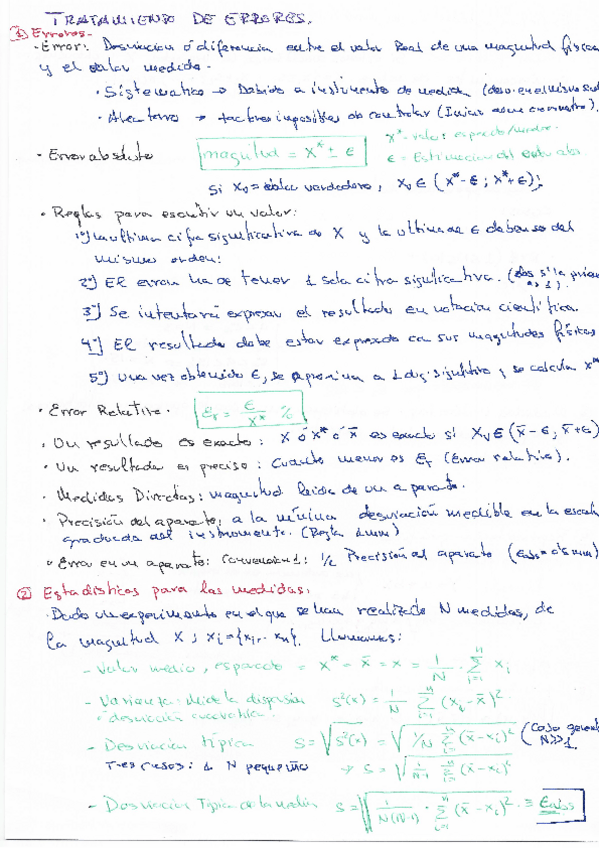 TRATAMIENTO DE ERRORES.
① Errores.-
· Error: Desviacion ó diferencia entre el valor Real de una magnitud física
y el valor medido.-
· Sistematico → Debido a instrumento de medida
· Aleatorio → factores imposibles de controlar
· Error absoluto magnitud = X* ± ϵ X* - valor esperado/medido.
ϵ = Estimacion del error abs
Si X₀ = valor verdadero, Xᵥ ∈ (X*-ϵ ; X*+ϵ)
· Reglas para escribir un valor:
1º) la ultima cifra significativa de X y la ultima de ϵ deben ser del
mismo orden:
2º) El error ha de tener 1 sola cifra significativa.
3º) Se intentará expresar el resultado en notación científica.
4º) El resultado debe estar expresado con sus magnitudes físicas
5º) Una vez obtenido ϵ, se aproxima a 1 dig. signifitivo y se calcula X*
· Error Relativo. Eᵣ = ϵ/X* %
· Un resultado es exacto: X ó X* ó x̄ es exacto si Xᵥ ∈ (x̄-ϵ, x̄+ϵ)
· Un resultado es preciso: Cuanto menor es Eᵣ (Error relativo).
· Medidas Directas: magnitud leida de un aparato.
· Precisión del aparato: a la mínima desviación medible en la escala
graduada del instrumento. (Regla 1mm)
· Error en un aparato: Convencional: 1/2 Precisión del aparato
② Estadísticos para las medidas:
· Dado un experimento en el que se han realizado N medidas, de
la magnitud X; xᵢ = {x₁, .. xₙ}. Llamamos:
- Valor medio, esperado = X* = x̄ = x = 1/N · Σ xᵢ
- Varianza: mide la dispersión s²(x) = 1/N Σ (xᵢ - x̄)²
ó desviacion cuadratica.
- Desviacion típica S = √s²(x) = √1/N Σ (x̄ - xᵢ)² (Caso general N>>1
Tres casos: 1 N pequeño → S = √1/N-1 Σ (x̄ - xᵢ)²
- Desviacion Tipica de la media S = √1/N(N-1) · Σ (x̄ - xᵢ)²